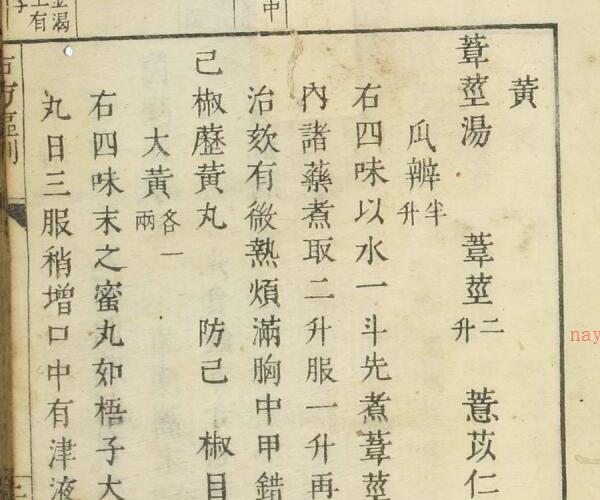 黃
葦莖湯 葦莖二升 薏苡仁
瓜瓣半升
右四味以水一斗先煮葦莖
內諸藥煮取二升服一升再
治欬有微熱煩滿胸中甲錯
己椒藶黃丸 防己 椒目
大黃各一兩
右四味末之蜜丸如梧子大
丸日三服稍增口中有津液
nay